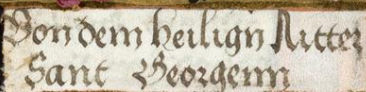 Von dem heilign Ritter
Sant Georgenn